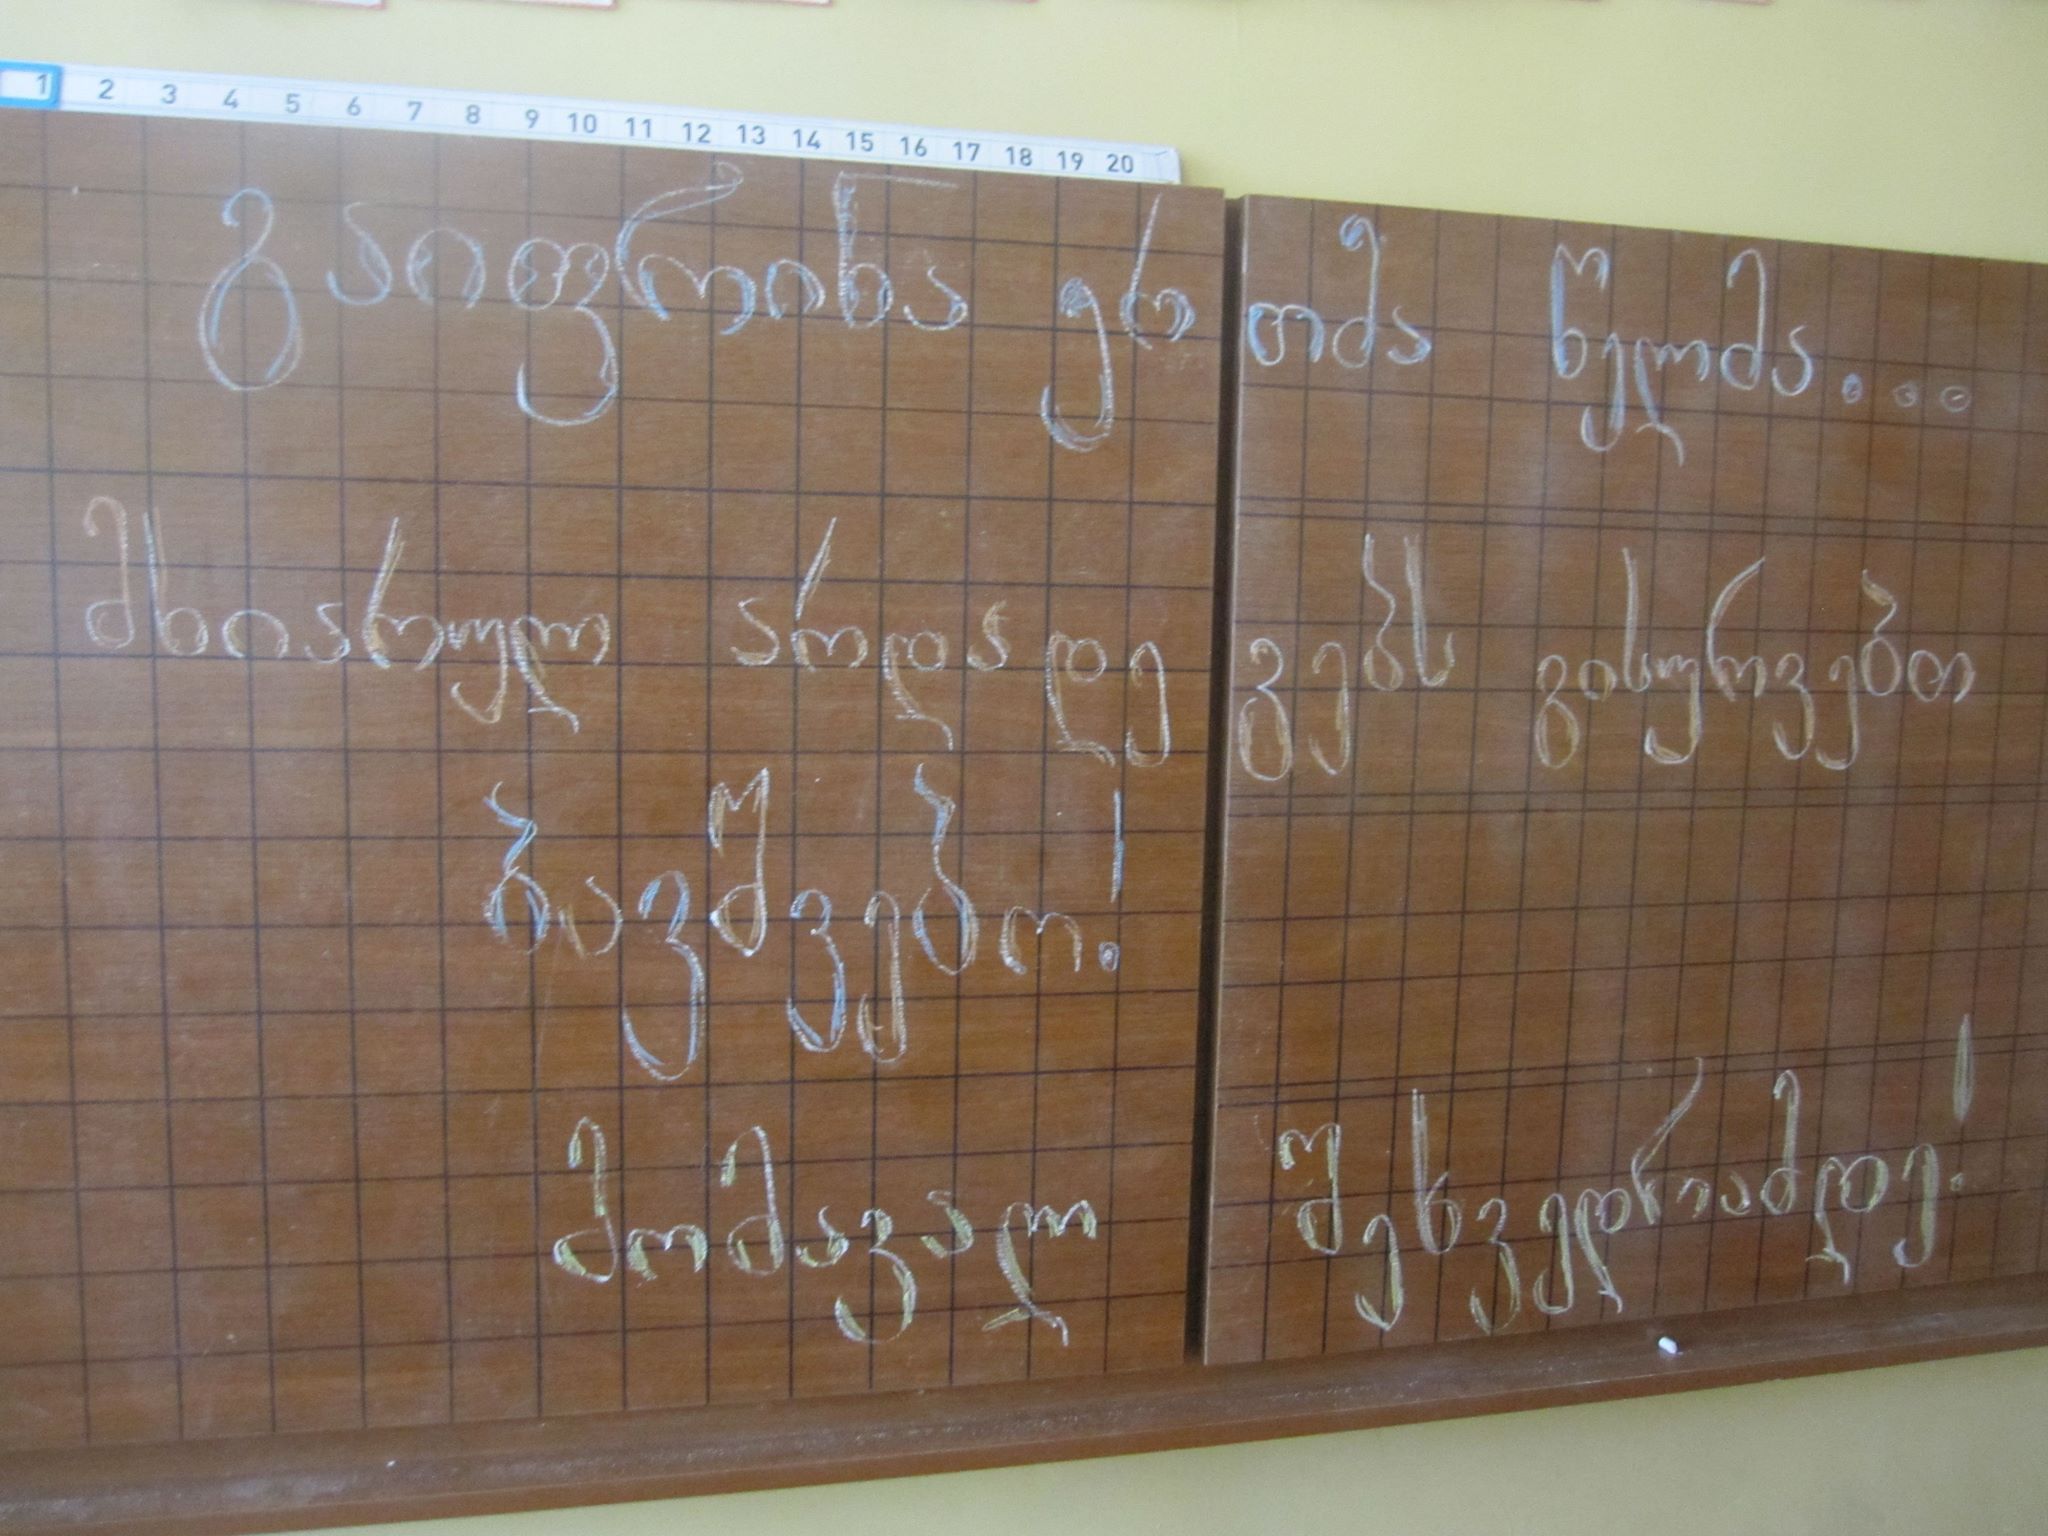 1 2 3 4 5 6 7 8 9 10 11 12 13 14 15 16 17 18 19 20
გაიფრინა ერთმა წელმა...
მხიარულ არდადეგებს გისურვებთ
ბავშვებო!
მომავალ შეხვედრიამდე!